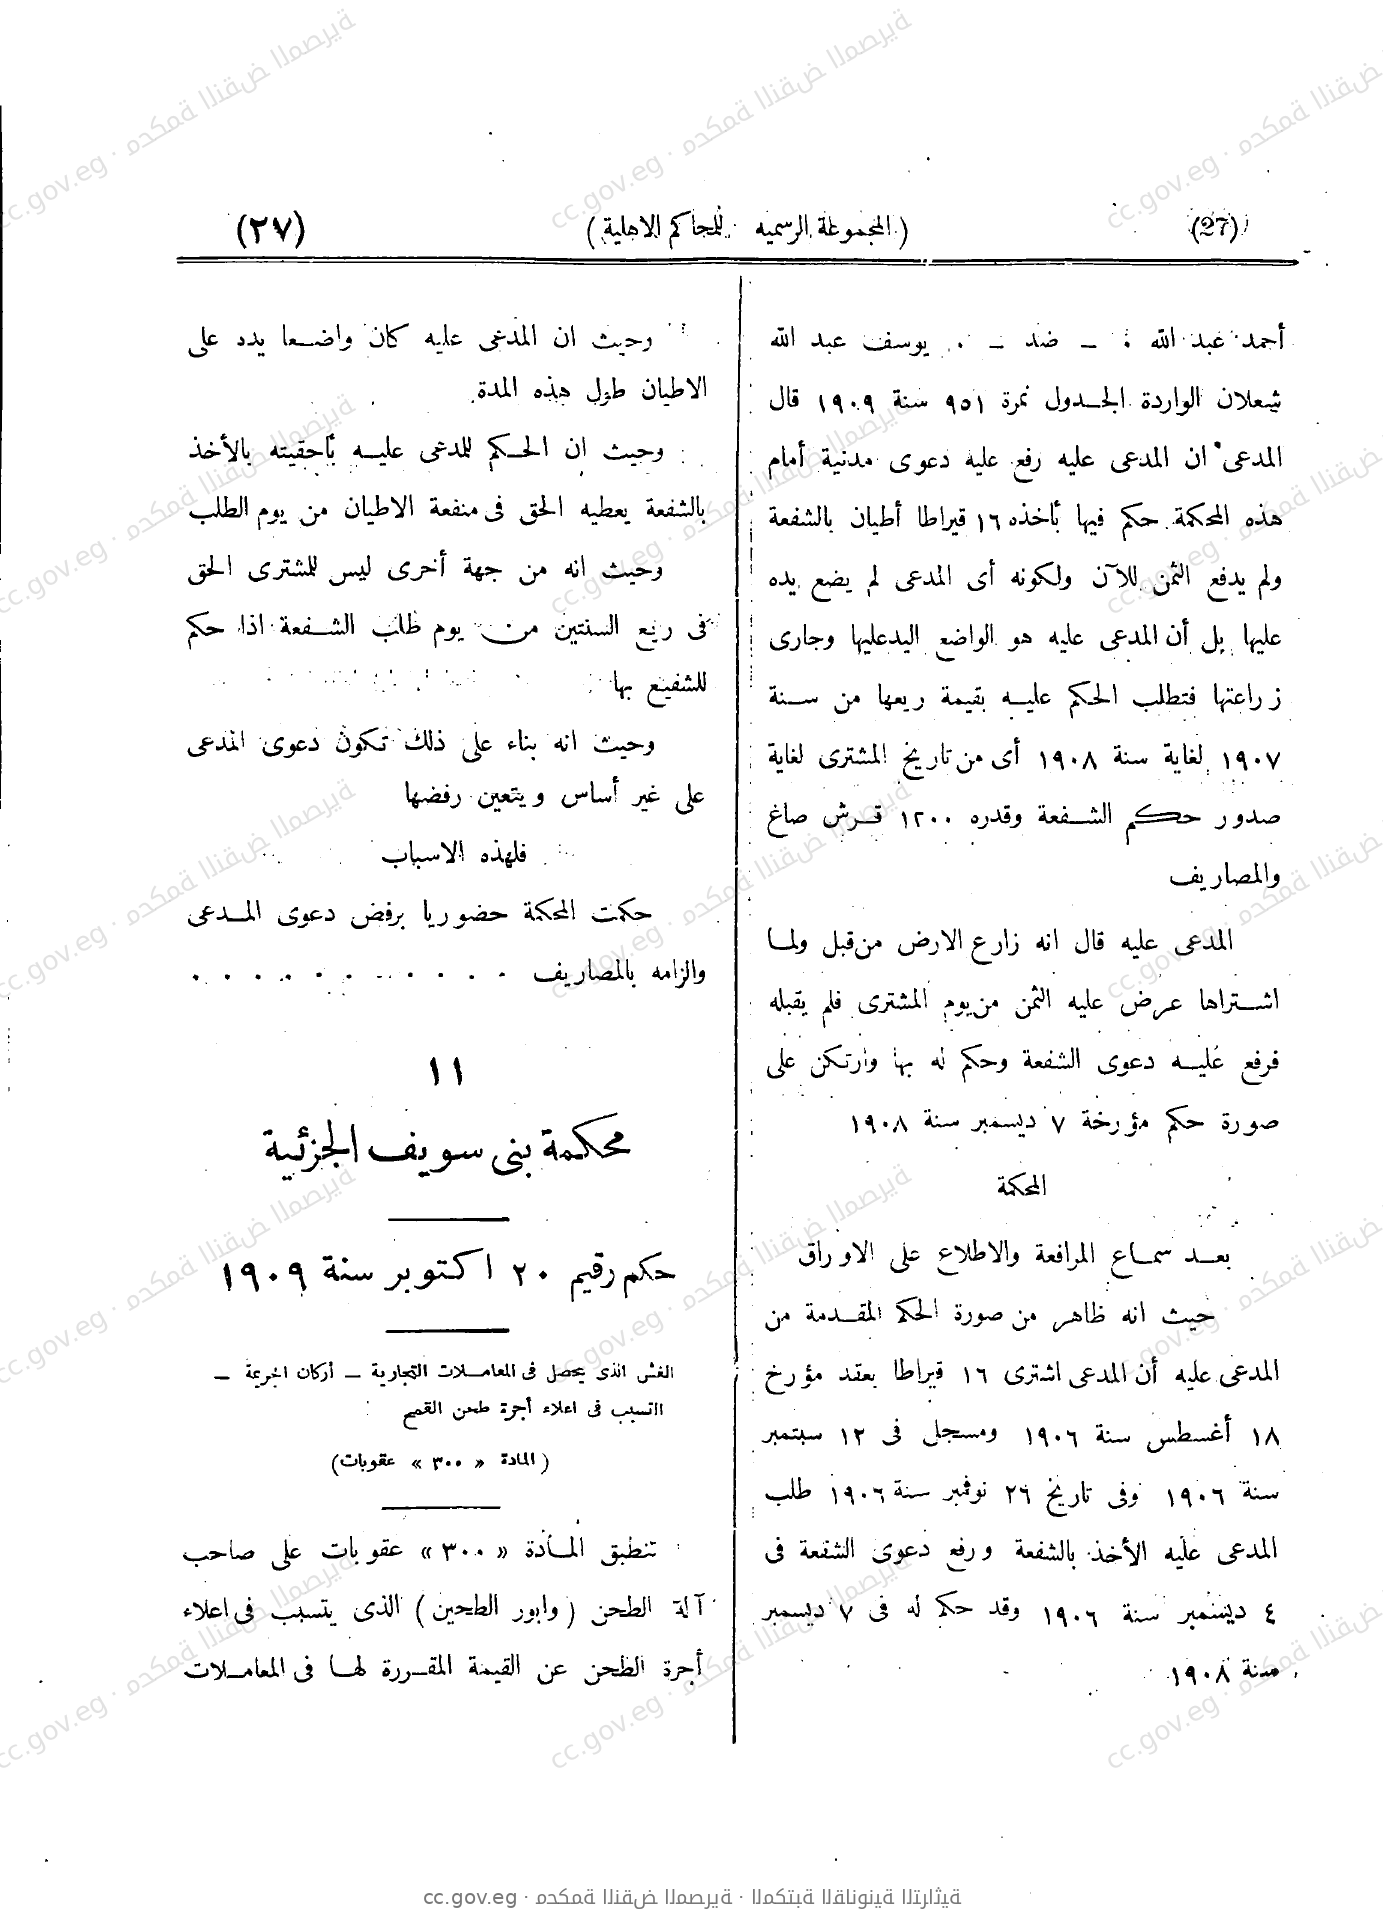 (27) (المجموعة الرسمية للمحاكم الاهلية) (٢٧)
أحمد عبد الله – ضد – يوسف عبد الله
شعلان الواردة الجدول نمرة ٩٥١ سنة ١٩٠٩ قال
المدعى ان المدعى عليه رفع عليه دعوى مدنية أمام
هذه المحكمة حكم فيها بأخذه ١٦ قيراطا أطيان بالشفعة
ولم يدفع الثمن للآن ولكونه أى المدعى لم يضع يده
عليها بل أن المدعى عليه هو الواضع اليد عليها وجارى
زراعتها فتطلب الحكم عليه بقيمة ريعها من سنة
١٩٠٧ لغاية سنة ١٩٠٨ أى من تاريخ المشترى لغاية
صدور حكم الشفعة وقدره ١٢٠٠ قرش صاغ
والمصاريف
المدعى عليه قال انه زارع الارض من قبل ولما
اشتراها عرض عليه الثمن من يوم المشترى فلم يقبله
فرفع عليه دعوى الشفعة وحكم له بها وارتكن على
صورة حكم مؤرخة ٧ ديسمبر سنة ١٩٠٨
المحكمة
بعد سماع المرافعة والاطلاع على الاوراق
حيث انه ظاهر من صورة الحكم المقدمة من
المدعى عليه أن المدعى اشترى ١٦ قيراطا بعقد مؤرخ
١٨ أغسطس سنة ١٩٠٦ ومسجل فى ١٢ سبتمبر
سنة ١٩٠٦ وفى تاريخ ٢٦ نوفمبر سنة ١٩٠٦ طلب
المدعى عليه الأخذ بالشفعة ورفع دعوى الشفعة فى
٤ ديسمبر سنة ١٩٠٦ وقد حكم له فى ٧ ديسمبر
سنة ١٩٠٨
وحيث ان المدعى عليه كان واضعا يده على
الاطيان طول هذه المدة
وحيث ان الحكم للمدعى عليه بأحقيته بالأخذ
بالشفعة يعطيه الحق فى منفعة الاطيان من يوم الطلب
وحيث انه من جهة أخرى ليس للمشترى الحق
فى ريع السنتين من يوم طلب الشفعة اذا حكم
للشفيع بها
وحيث انه بناء على ذلك تكون دعوى المدعى
على غير أساس ويتعين رفضها
فلهذه الاسباب
حكمت المحكمة حضوريا برفض دعوى المدعى
والزامه بالمصاريف . . . . . . . . . . .
١١
محكمة بنى سويف الجزئية
حكم رقيم ٢٠ اكتوبر سنة ١٩٠٩
الغش الذى يحصل فى المعاملات التجارية – أركان الجريمة –
التسبب فى اعلاء أجرة طحن القمح
(المادة «٣٠٠» عقوبات)
تنطبق المادة «٣٠٠» عقوبات على صاحب
آلة الطحن (وابور الطحين) الذى يتسبب فى اعلاء
أجرة الطحن عن القيمة المقررة لها فى المعاملات
cc.gov.eg · محكمة النقض المصرية · المكتبة القانونية التراثية